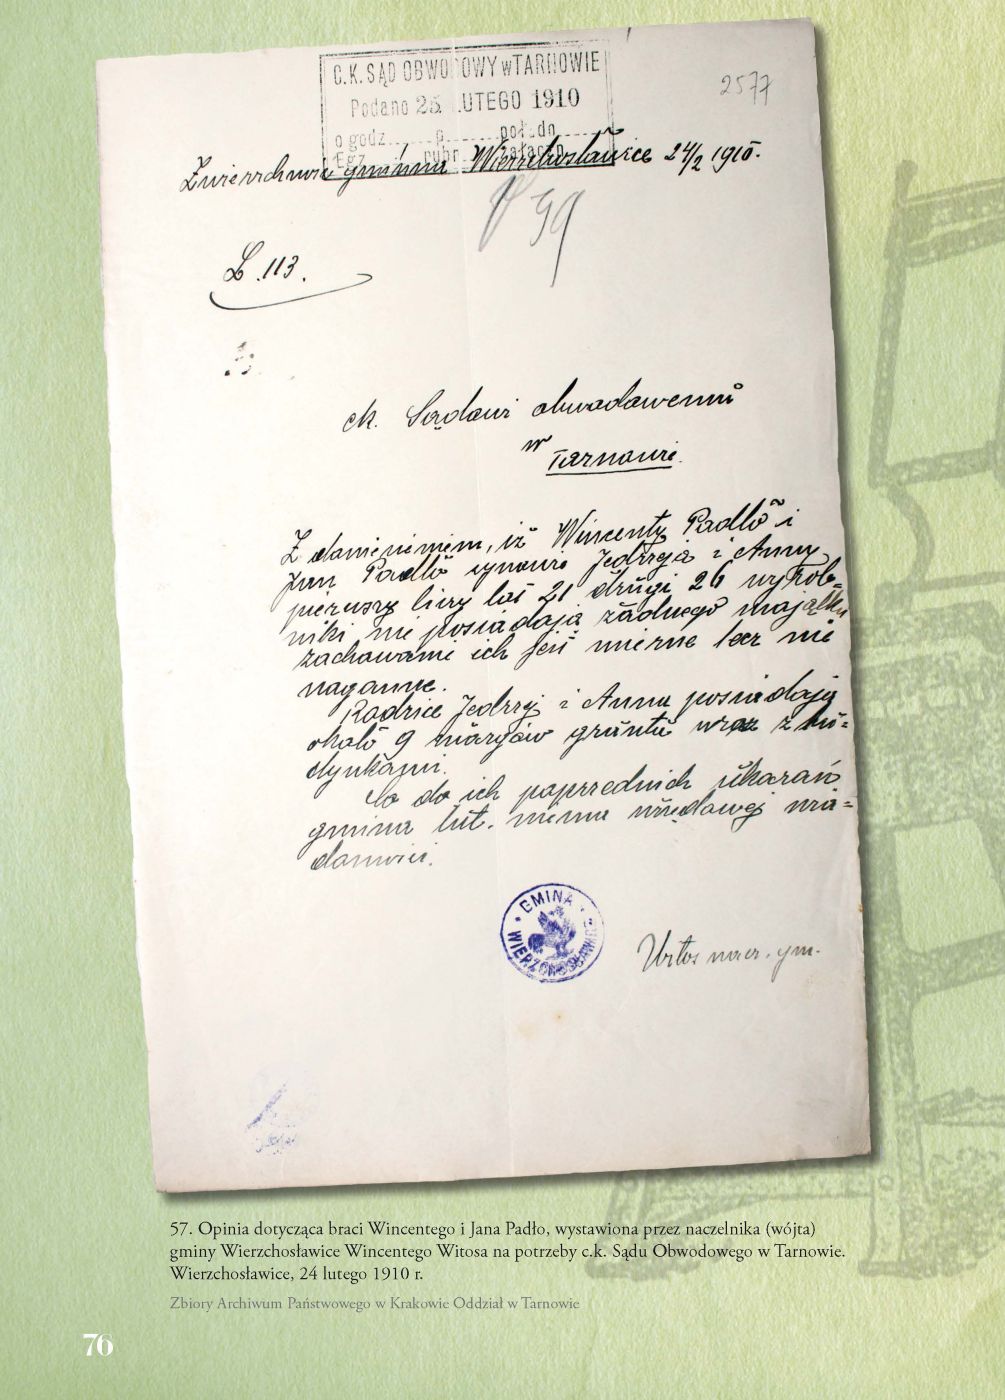 C.K. SĄD OBWODOWY w TARNOWIE
Podano 25. LUTEGO 1910
o godz. p. poł. dn.
Egz. rubr. załączn.
2577
Zwierzchność gminna Wierzchosławice 24/2 1910.
59
L. 113.
ck. Sądowi obwodowemu
w
Tarnowie.
Z doniesieniem, iż Wincenty Padło i
Jan Padło synowie Jędrzeja i Anny
pierwszy liczy lat 21 drugi 26 wyrob=
niki nie posiadają żadnego majątku
zachowanie ich jest mierne lecz nie
naganne.
Rodzice Jędrzej i Anna posiadają
około 9 morgów gruntu wraz z bu=
dynkami.
Co do ich poprzednich ukarań
gmina tut. niema urzędowej wia=
domości.
GMINA WIERZCHOSŁAWICE
Witos nacz. gm.
57. Opinia dotycząca braci Wincentego i Jana Padło, wystawiona przez naczelnika (wójta)
gminy Wierzchosławice Wincentego Witosa na potrzeby c.k. Sądu Obwodowego w Tarnowie.
Wierzchosławice, 24 lutego 1910 r.
Zbiory Archiwum Państwowego w Krakowie Oddział w Tarnowie
76